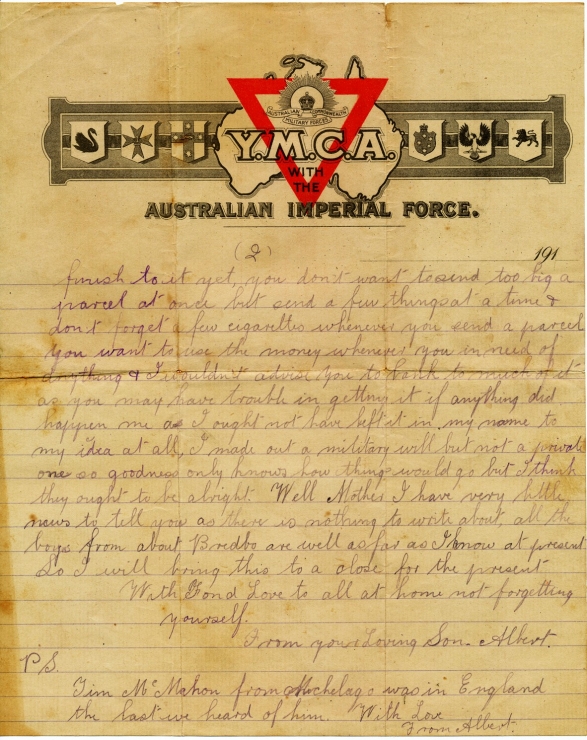 AUSTRALIAN COMMONWEALTH
MILITARY FORCES
Y.M.C.A.
WITH
THE
AUSTRALIAN IMPERIAL FORCE.
(2)
191
finish to it yet, you don't want to send too big a
parcel at once but send a few things at a time &
don't forget a few cigarettes whenever you send a parcel
you want to use the money whenever you in need of
anything & I wouldn't advise you to bank to much of it
as you may have trouble in getting it if anything did
happen me as I ought not have left it in my name to
my idea at all, I made out a military will but not a private
one so goodness only knows how things would go but I think
they ought to be alright. Well Mother I have very little
news to tell you as there is nothing to write about, all the
boys from about Bredbo are well as far as I know at present
So I will bring this to a close for the present
With Fond Love to all at home not forgetting
yourself.
From your Loving Son. Albert.
P.S.
Tim McMahon from Michelago was in England
the last we heard of him. With Love
From Albert.